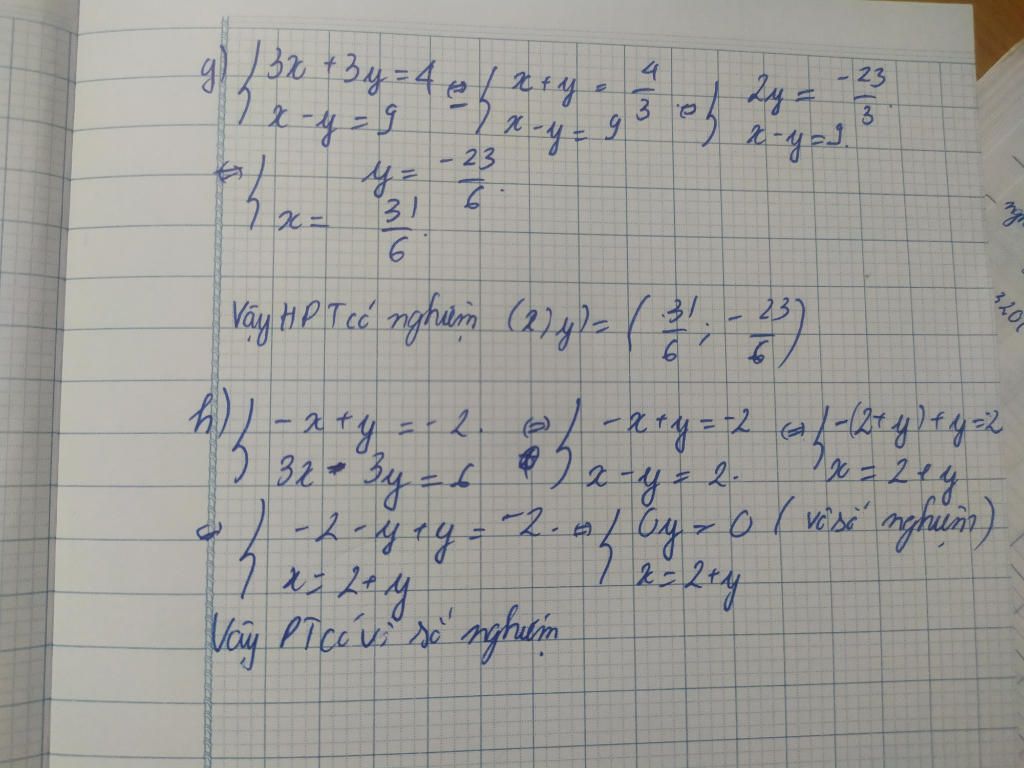 g) { 3x + 3y = 4 ; x - y = 9 ⇔ { x + y = 4/3 ; x - y = 9 ⇔ { 2y = -23/3. ; x - y = 9.
⇔ { y = -23/6. ; x = 31/6.
Vậy HPT có nghiệm (x; y) = (31/6; -23/6)
h) { -x + y = -2. ; 3x - 3y = 6 ⇔ { -x + y = -2 ; x - y = 2. ⇔ { -(2+y) + y = -2 ; x = 2 + y
⇔ { -2 - y + y = -2. ; x = 2 + y ⇔ { 0y = 0 (vô số nghiệm) ; x = 2 + y
Vậy PT có vô số nghiệm